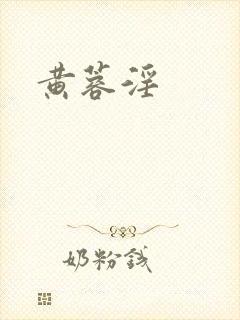 黄蓉淫
奶粉钱